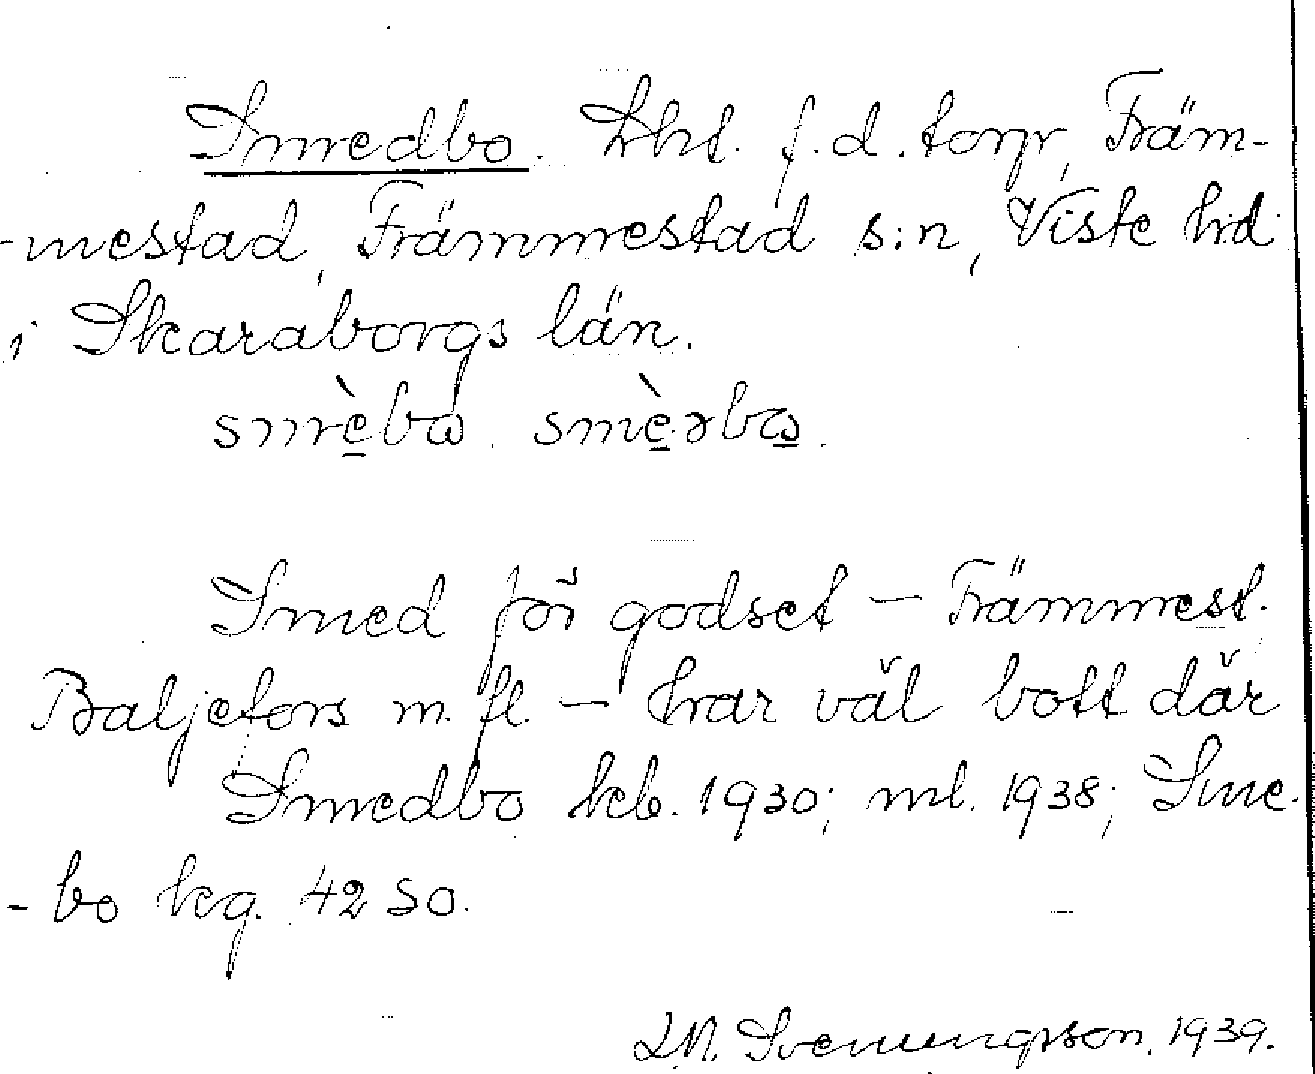 Smedbo. Lht. f.d. torp, Främ-
-mestad, Främmestad s:n, Viste hd
i Skaraborgs län.
smèba. smèrba.
Smed för godset – Främmest.
Baljefors m. fl. – har väl bott där
Smedbo kb. 1930; ml. 1938; Sme-
-bo kg. 42 SO.
Svenungsson. 1939.